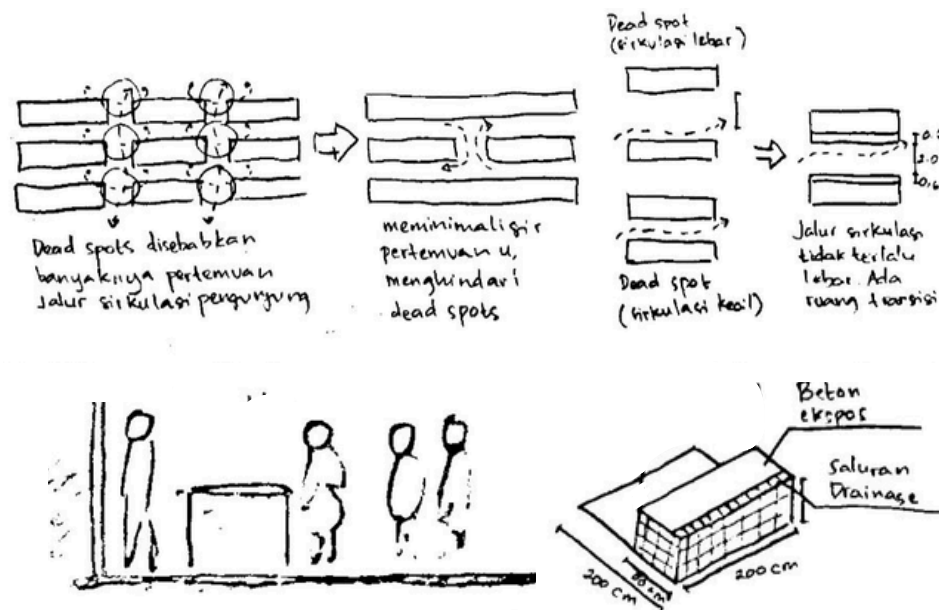 Dead spots disebabkan
banyaknya pertemuan
Jalur sirkulasi pengunjung
meminimalisir
pertemuan u,
menghindari
dead spots
Dead spot
(sirkulasi lebar)
Dead spot
(sirkulasi kecil)
2.0
0,6
Jalur sirkulasi
tidak terlalu
lebar. Ada
ruang transisi
Beton
ekspos
Saluran
Drainase
200 cm
cm
200 cm